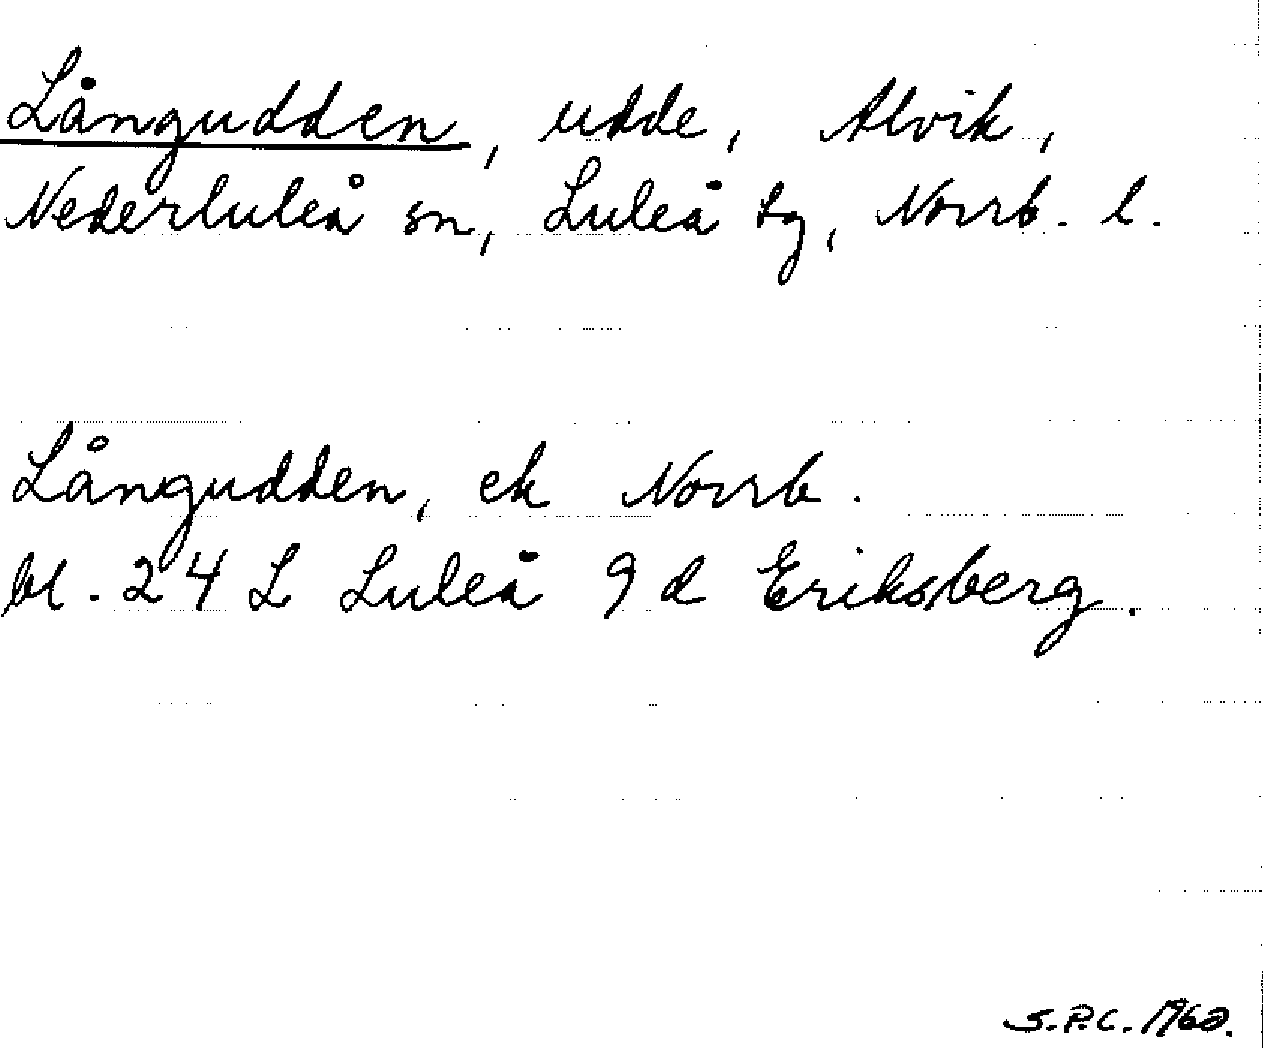 Långudden, udde, Alvik,
Nederluleå sn, Luleå tg, Norrb. l.
Långudden, ek Norrb.
bl. 24 L Luleå 9 d Eriksberg.
S.P.C. 1960.